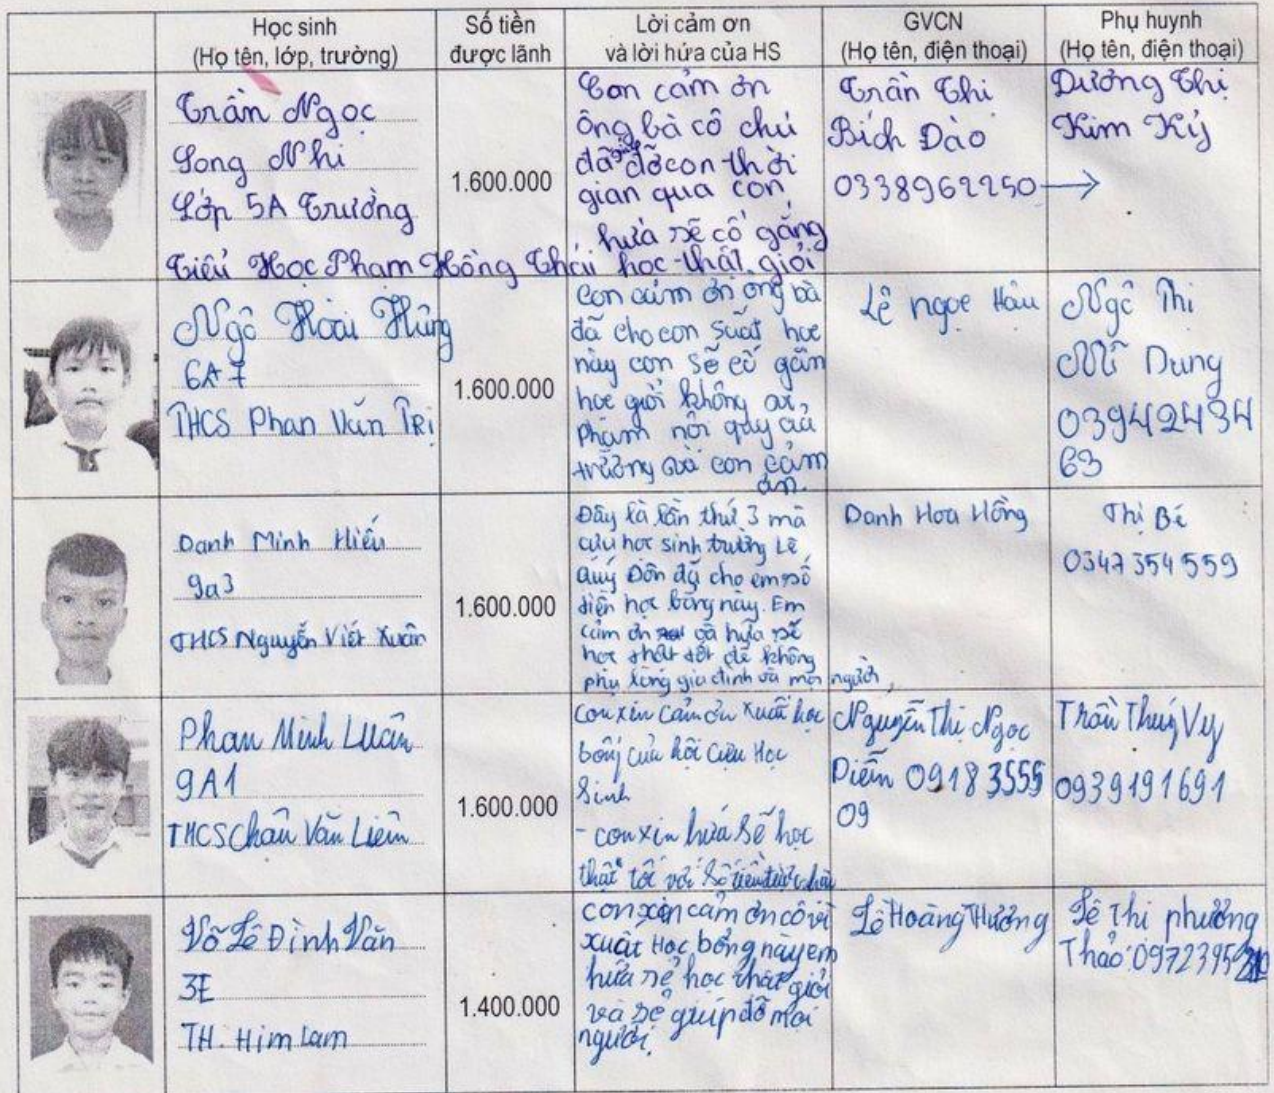 Học sinh
(Họ tên, lớp, trường)
Số tiền
được lãnh
Lời cảm ơn
và lời hứa của HS
GVCN
(Họ tên, điện thoại)
Phụ huynh
(Họ tên, điện thoại)
Trần Ngọc
Song Nhi
Lớp 5A Trường
Tiểu Học Phạm Hồng Thái
1.600.000
Con cảm ơn
ông bà cô chú
đã giúp đỡ con thời
gian qua con
hứa sẽ cố gắng
học thật giỏi
Trần Thi
Bích Đào
0338962250
Dương Thị
Kim Ký
Ngô Hoài Hũng
6A7
THCS Phan Văn Trị
1.600.000
Con cảm ơn ong bà
đã cho con suất học
này con sẽ cố gắn
học giỏi không
phạm nội quy của
trường và con cảm
ơn.
Lê ngọc Hậu
Ngô Thị
Mĩ Dung
039424 34
63
Danh Minh Hiếu
9a3
THCS Nguyễn Viết Xuân
1.600.000
Đây là lần thứ 3 mà
cựu học sinh trường Lê
Quý Đôn đã cho em số
tiền học bỗng này. Em
cảm ơn và hứa sẽ
học thật tốt để không
phụ lòng gia đình và mọi người,
Danh Hoa Hồng
Thị Bé
0347 354 559
Phan Minh Luân
9A1
THCS Châu Văn Liêm
1.600.000
Con xin cảm ơn xuất học
bổng của hội cựu Học
Sinh
- con xin hứa sẽ học
thật tốt với số tiền được
Nguyễn Thị Ngọc
Diễm 09183555
09
Trần Thuý Vy
0939191691
Võ Lê Đình Văn
3E
TH. Him Lam
1.400.000
con xin cảm ơn cô vì
xuất Học bổng này em
hứa sẽ học thật giỏi
và sẽ giúp đỡ mọi
người.
Lê Hoàng Hưởng
Lê Thi phường
Thảo: 0972395